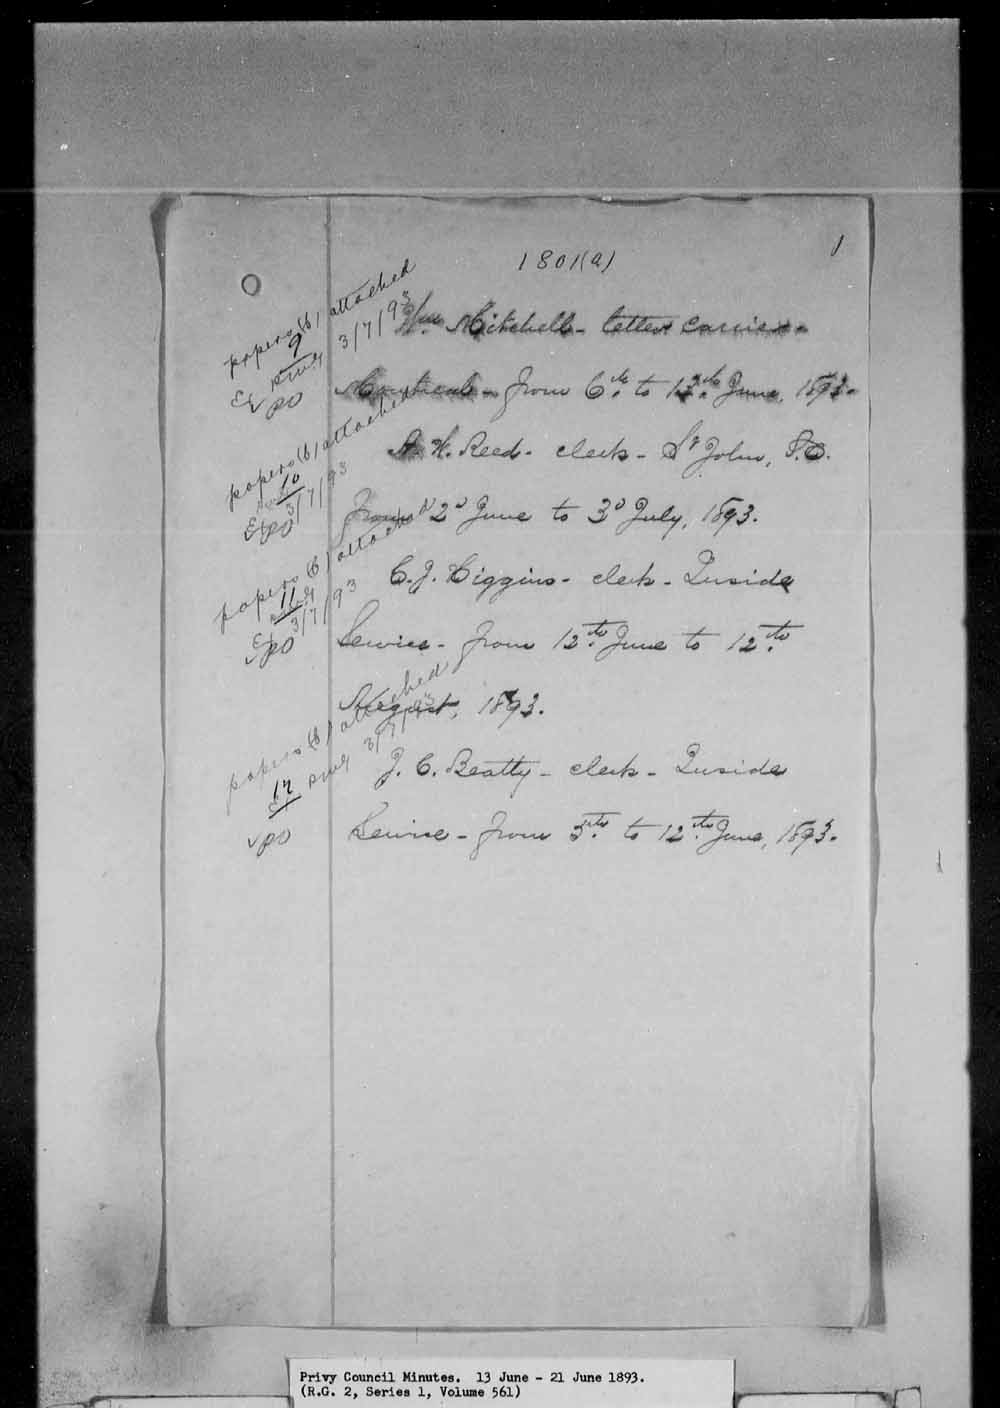 1801(a)
1
Wm Mitchell - letter carrier -
Montreal - from 6th to 13th June, 1893.
A. H. Reed - clerk - St John, P.O.
From 2d June to 3d July, 1893.
C. J. Higgins - clerk - Inside
Service - from 12th June to 12th
August, 1893.
J. C. Beatty - clerk - Inside
Service - from 5th to 12th June, 1893.
papers (b) attached
9
3/7/93
Ex
PO
papers (b) attached
10
3/7/93
Ex
PO
papers (b) attached
11
3/7/93
Ex
PO
papers (b) attached
12
3/7/93
Ex
PO
Privy Council Minutes. 13 June - 21 June 1893.
(R.G. 2, Series 1, Volume 561)